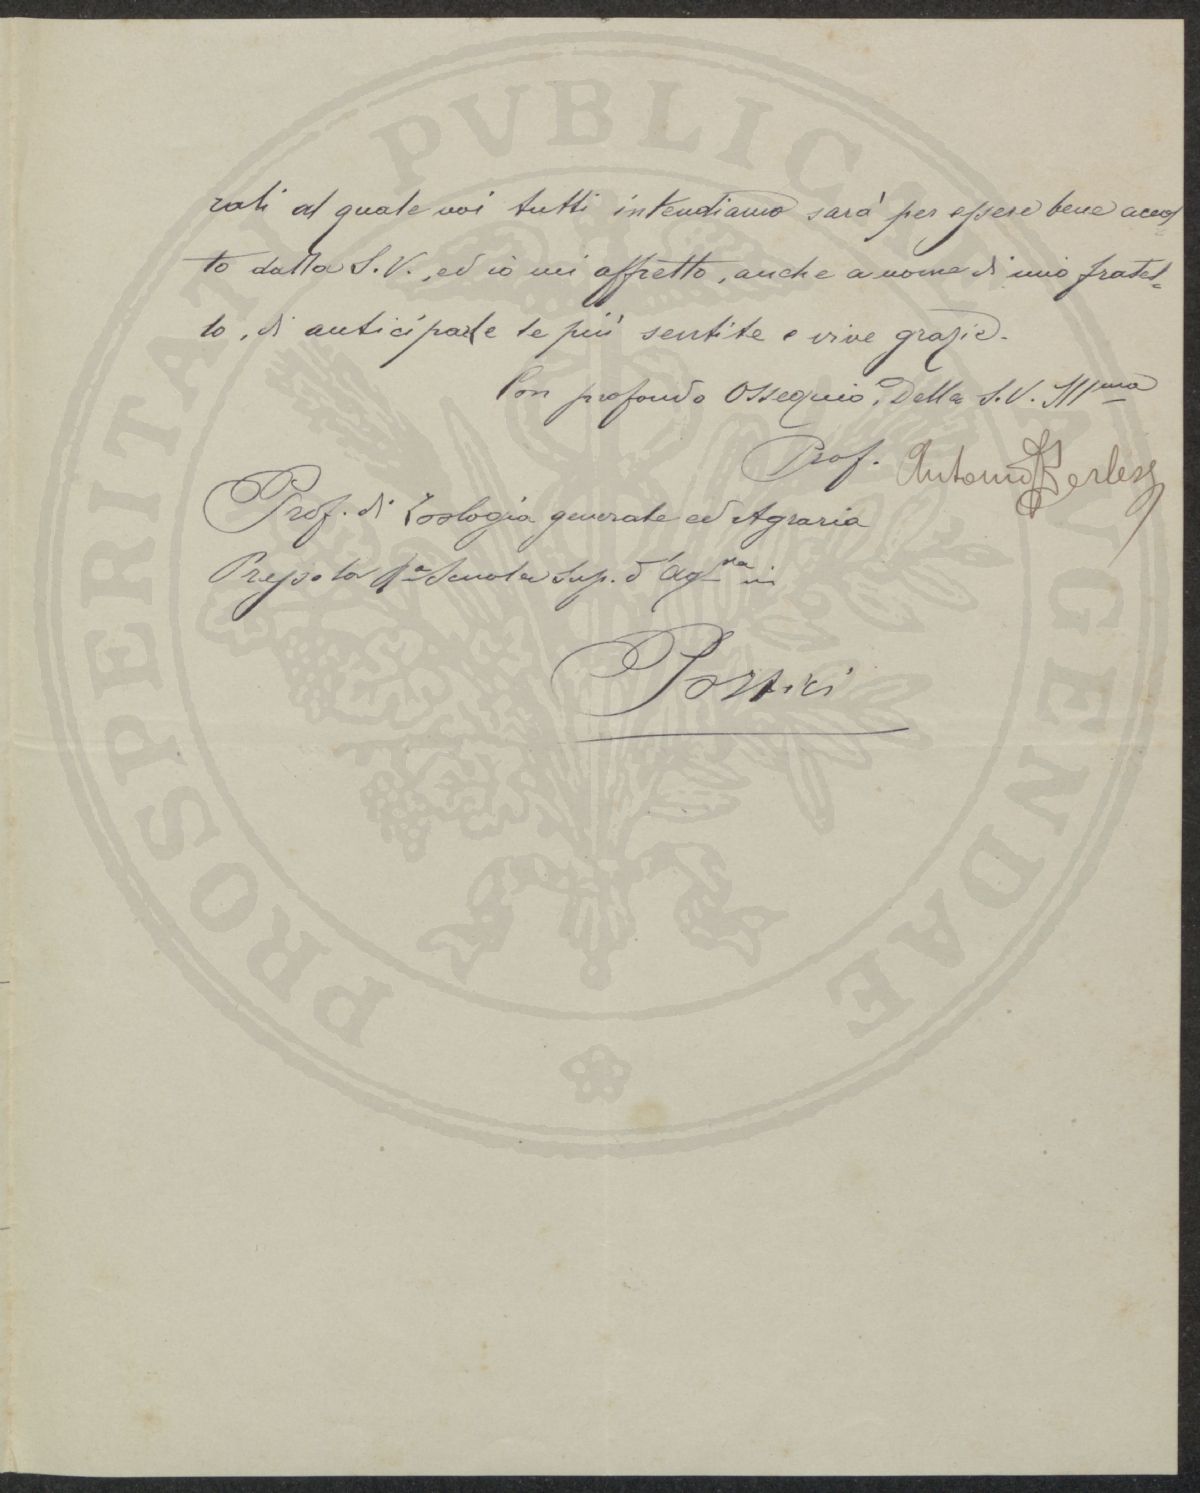 rali al quale noi tutti intendiamo sarà per essere bene accol=
to dalla S. V., ed io mi affretto, anche a nome di mio fratel=
lo, di anticipare le più sentite e vive grazie.
Con profondo Ossequio, Della S. V. Illma
Prof. Antonio Berlese
Prof. di Zoologia generale ed Agraria
Presso la Ra Scuola Sup. d'Agria in
Portici
PROSPERITATI PVBLICAE AVGENDAE